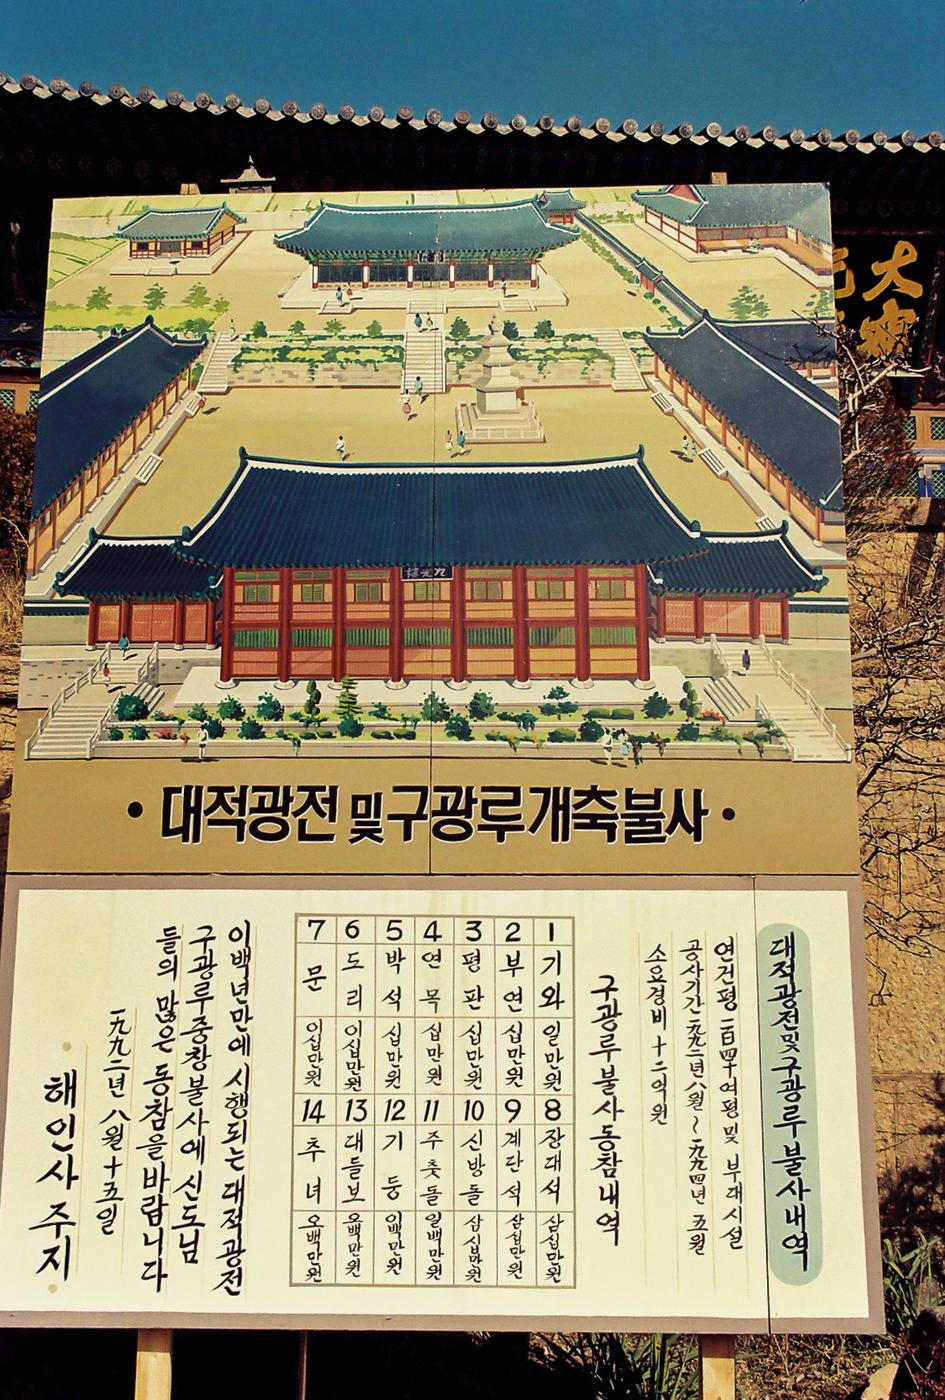 大寂
九光樓
• 대적광전 및 구광루개축불사 •
대적광전및구광루불사내역
연건평 二百四十여평 및 부대시설
공사기간 一九九二년 八월 ~ 一九九四년 五월
소요경비 十二억원
구광루불사동참내역
1 기와 일만원
2 부연 십만원
3 평판 십만원
4 연목 십만원
5 박석 십만원
6 도리 이십만원
7 문 이십만원
8 장대석 삼십만원
9 계단석 삼십만원
10 신방돌 삼십만원
11 주춧돌 일백만원
12 기둥 이백만원
13 대들보 오백만원
14 추녀 오백만원
이백년만에 시행되는 대적광전
구광루중창불사에 신도님
들의 많은 동참을 바랍니다
一九九二년 八월 十五일
해인사주지